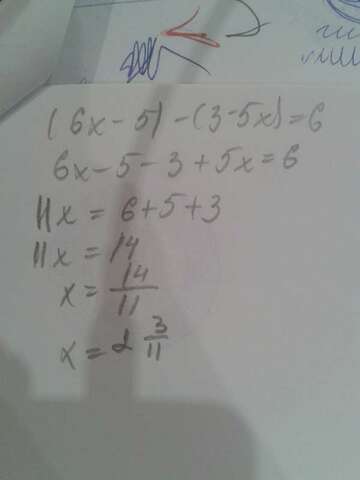 (6x-5)-(3-5x)=6
6x-5-3+5x=6
11x=6+5+3
11x=14
x=14/11
x=1 3/11